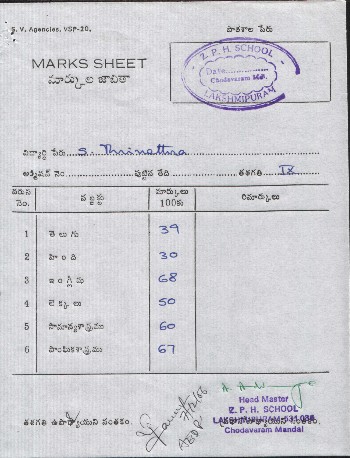 S. V. Agencies, VSP-20.
పాఠశాల పేరు
MARKS SHEET
మార్కుల జాబితా
Z. P. H. SCHOOL
Date
Chodavaram Md.
LAKSHMIPURAM
విద్యార్థి పేరు S. Thrinadha
అడ్మిషన్ నెం. పుట్టిన తేది తరగతి IX
వరుస నెం. సబ్జెక్టు మార్కులు 100కు రిమార్కులు
1 తెలుగు 39
2 హింది 30
3 ఇంగ్లీషు 68
4 లెక్కలు 50
5 సామాన్యశాస్త్రము 60
6 సాంఘికశాస్త్రము 67
Head Master
Z. P. H. SCHOOL
తరగతి ఉపాధ్యాయుని సంతకం.
LAKSHMIPURAM-531 036
Chodavaram Mandal